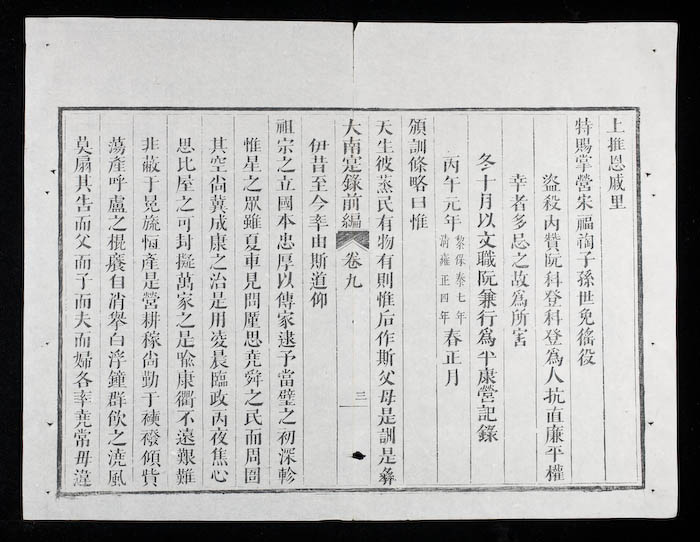 上推恩戚里
特賜掌營宋福禂子孫世免徭役
盜殺內贊阮科登科登爲人抗直廉平權
幸者多忌之故爲所害
冬十月以文職阮兼行爲平康營記錄
丙午元年黎保泰七年清雍正四年春正月
頒訓條略曰惟
天生彼蒸民有物有則惟后作斯父母是訓是彝
大南寔錄前編 卷九 三
伊昔至今率由斯道仰
祖宗之立國本忠厚以傳家逮予當璧之初深軫
惟星之眾雖夏車見問匪思堯舜之民而周圄
其空尙冀成康之治是用凌晨臨政丙夜焦心
思比屋之可封擬萬家之是喩康衢不遠艱難
非蔽于冕旒恆產是營耕稼尙勤于襏襫傾貲
蕩產呼盧之棍癈自消舉白浮鐘群飲之澆風
莫扇其告而父而子而夫而婦各率堯常毋違